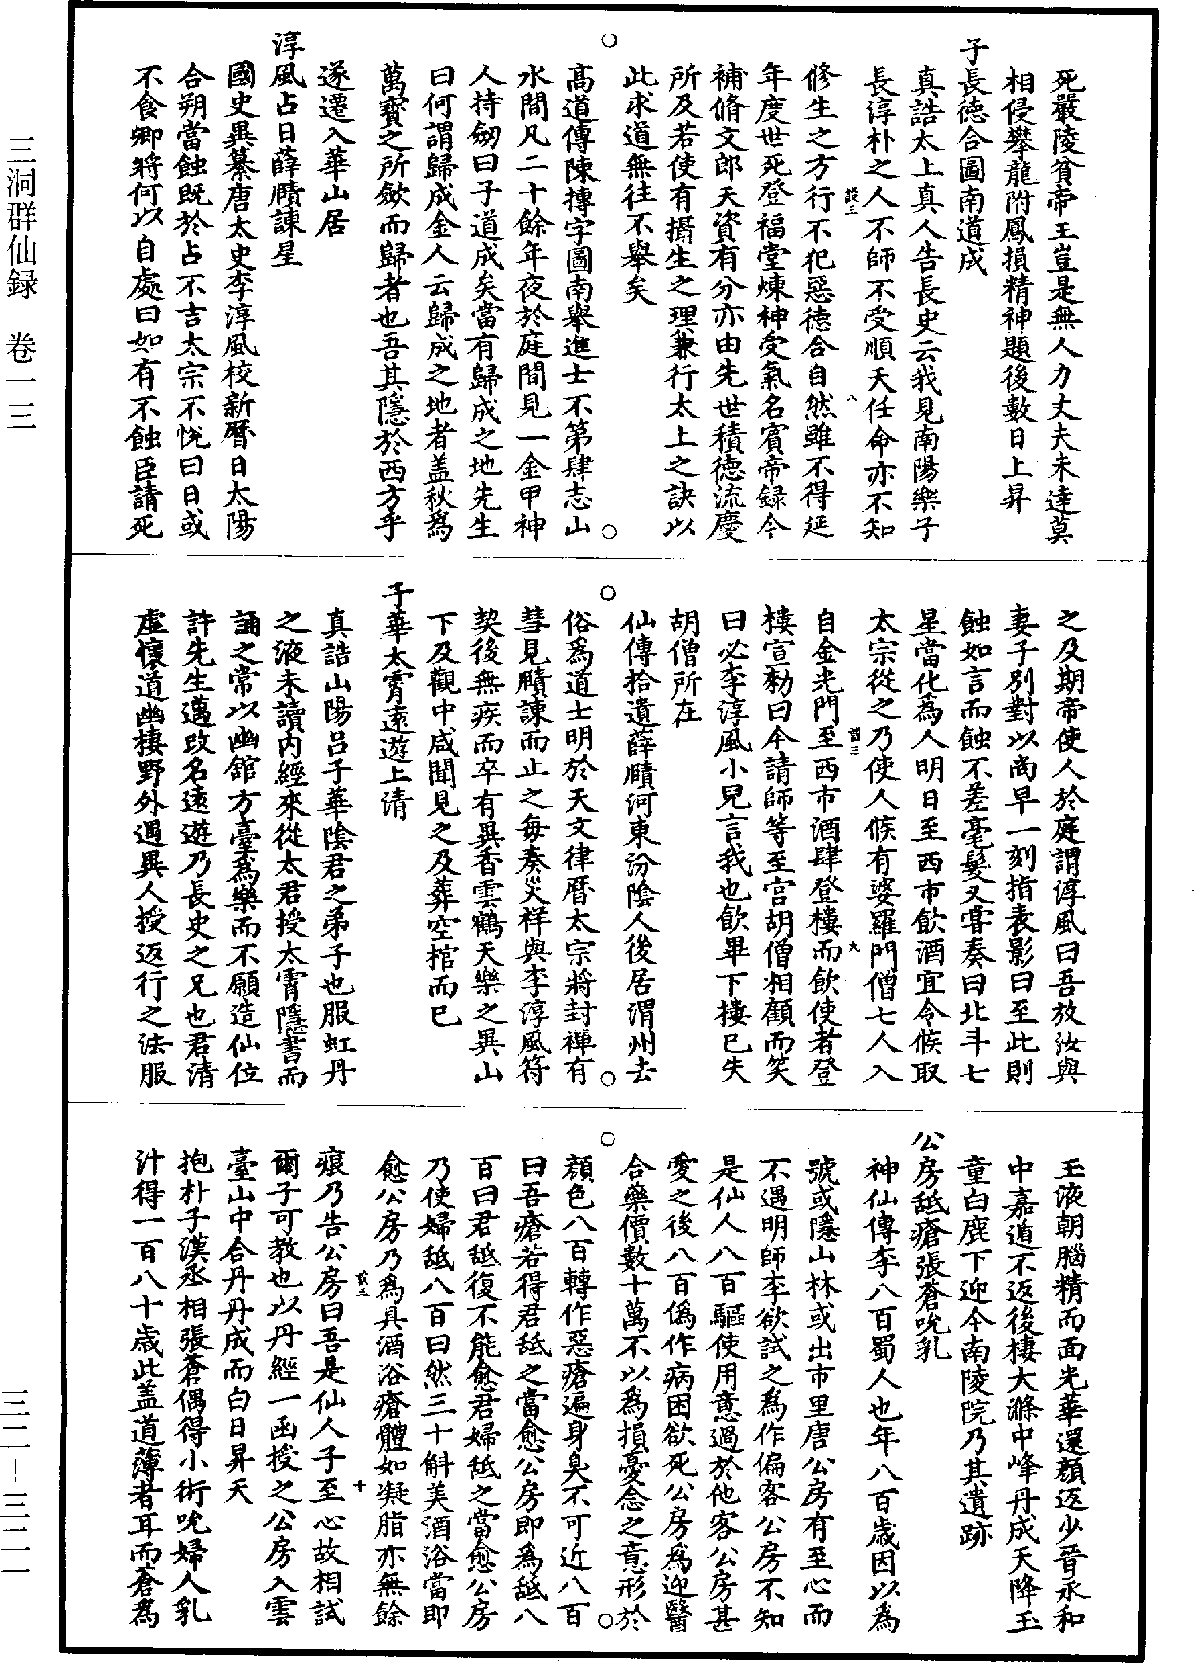 三洞群仙録　卷一三
三二—三二一
死嚴陵貧帝王豈是無人力丈夫未達莫
相侵攀龍附鳳損精神題後數日上昇
子長德合圖南道成
真誥太上真人告長史云我見南陽樂子
長淳朴之人不師不受順天任命亦不知
修生之方行不犯惡德合自然雖不得延
年度世死登福堂煉神受氣名賓帝録今
補脩文郎天資有分亦由先世積德流慶
所及若使有攝生之理兼行太上之訣以
此求道無往不舉矣
高道傳陳摶字圖南舉進士不第肆志山
水間凡二十餘年夜於庭間見一金甲神
人持劒曰子道成矣當有歸成之地先生
曰何謂歸成金人云歸成之地者蓋秋爲
萬寳之所斂而歸者也吾其隱於西方乎
遂遷入華山居
淳風占日薛賾諫星
國史異纂唐太史李淳風校新曆日太陽
合朔當蝕既於占不吉太宗不悅曰日或
不食卿將何以自處曰如有不蝕臣請死
之及期帝使人於庭謂淳風曰吾放汝與
妻子別對以尚早一刻指表影曰至此則
蝕如言而蝕不差毫髮又嘗奏曰北斗七
星當化爲人明日至西市飲酒宜令候取
太宗從之乃使人候有婆羅門僧七人入
自金光門至西市酒肆登樓而飲使者登
樓宣勑曰今請師等至宫胡僧相顧而笑
曰必李淳風小兒言我也飲畢下樓已失
胡僧所在
仙傳拾遺薛賾河東汾陰人後居渭州去
俗爲道士明於天文律曆太宗將封禪有
彗見賾諫而止之每奏災祥與李淳風符
契後無疾而卒有異香雲鶴天樂之異山
下及觀中咸聞見之及葬空棺而已
子華太霄遠遊上清
真誥山陽吕子華陰君之弟子也服虹丹
之液未讀内經來從太君授太霄隱書而
誦之常以幽館方臺爲樂而不願造仙位
許先生邁改名遠遊乃長史之兄也君清
虚懷道幽棲野外遇異人授返行之法服
玉液朝腦精而面光華還顏返少晉永和
中嘉遁不返後棲大滌中峰丹成天降玉
童白鹿下迎今南陵院乃其遺跡
公房舐瘡張蒼吮乳
神仙傳李八百蜀人也年八百歲因以爲
號或隱山林或出市里唐公房有至心而
不遇明師李欲試之爲作傭客公房不知
是仙人八百驅使用意過於他客公房甚
愛之後八百僞作病困欲死公房爲迎醫
合藥價數十萬不以爲損憂念之意形於
顏色八百轉作惡瘡遍身臭不可近八百
曰吾瘡若得君舐之當愈公房即爲舐八
百曰君舐復不能愈君婦舐之當愈公房
乃使婦舐八百曰然三十斛美酒浴當即
愈公房乃爲具酒浴瘡體如凝脂亦無餘
痕乃告公房曰吾是仙人子至心故相試
爾子可教也以丹經一函授之公房入雲
臺山中合丹丹成而白日昇天
抱朴子漢丞相張蒼偶得小術吮婦人乳
汁得一百八十歲此蓋道薄者耳而蒼爲